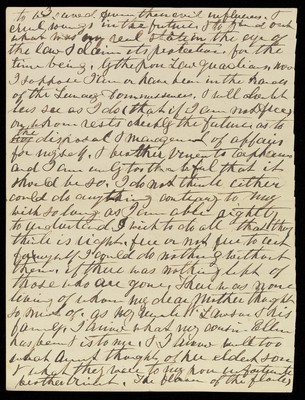 to be saved from their evil influences. I
cruel wrongs in the future. I to find out
what was my real state in the eye of
the law I claim its protection for the
time being. If the poor Law guardians, now
I suppose I am or have been in the hands
of the Lunacy Commissioners. I will doubt
less see as I do that if I am not free
on whom rests chiefly the future as to
the disposal & management of affairs
for myself. I
and I am only too thankful that it
should be so. I do not think either
could do anything contrary to my
wish so long as I am able rightly
to understand. I wish to do all that they
think is right. free or not free to act
for myself I could do nothing without
them. if there was nothing left of
those who are gone, there was none
living of whom my dear Mother thought
so much of. as my Uncle Lawson & his
family. I know what my cousin Ellen
has been & is to me. & I know well too
what Aunt thought of her eldest son
& what they were to my poor unfortunate
brother Dick. The